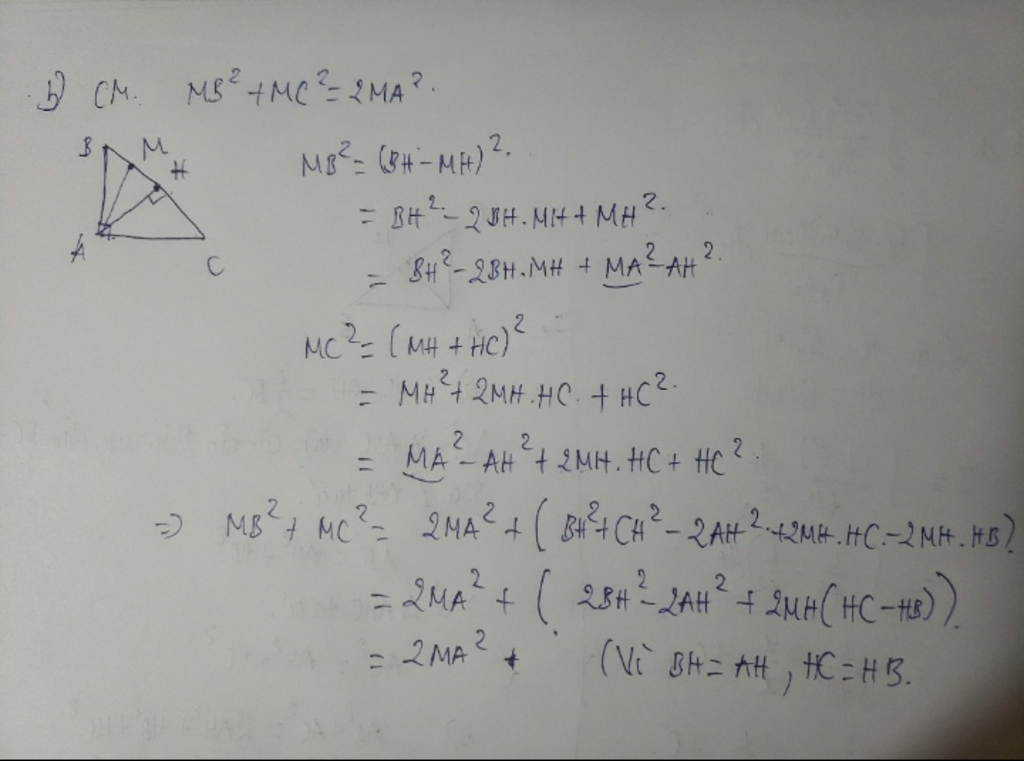 b) CM. MB² + MC² = 2MA².
B M H A C
MB² = (BH - MH)².
= BH² - 2BH.MH + MH².
= BH² - 2BH.MH + MA² - AH².
MC² = (MH + HC)²
= MH² + 2MH.HC + HC².
= MA² - AH² + 2MH.HC + HC².
=> MB² + MC² = 2MA² + (BH² + CH² - 2AH² + 2MH.HC - 2MH.HB).
= 2MA² + (2BH² - 2AH² + 2MH(HC - HB)).
= 2MA² + (Vì BH = AH, HC = HB.